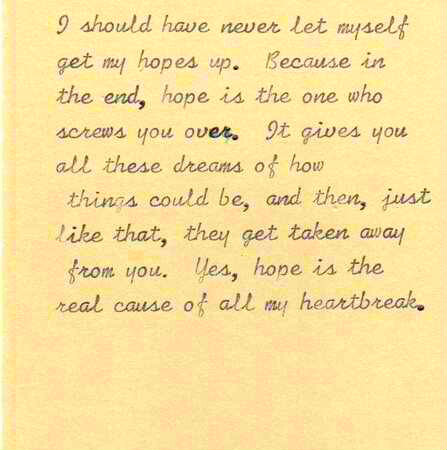 I should have never let myself
get my hopes up. Because in
the end, hope is the one who
screws you over. It gives you
all these dreams of how
things could be, and then, just
like that, they get taken away
from you. Yes, hope is the
real cause of all my heartbreak.